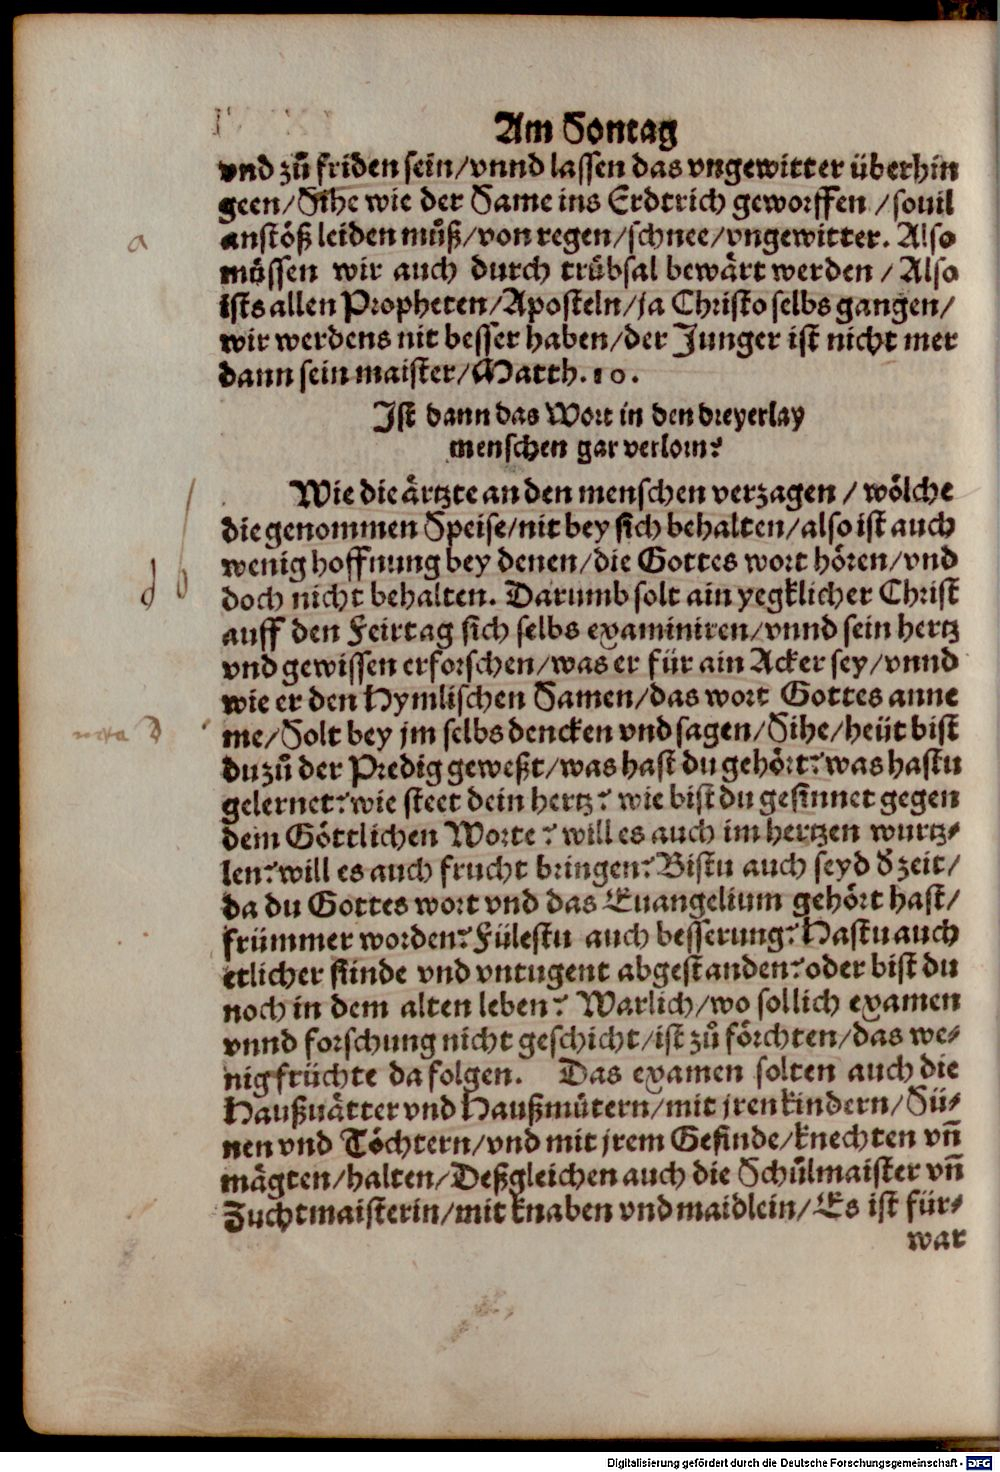 Am Sontag
vnd zuͦ friden sein/vnnd lassen das vngewitter überhin
geen/Sihe wie der Same ins Erdtrich geworffen/souil
anstöß leiden muͦß/von regen/schnee/vngewitter. Also
müssen wir auch durch trübsal bewärt werden/Also
ists allen Propheten/Aposteln/ja Christo selbs gangen/
wir werdens nit besser haben/der Junger ist nicht mer
dann sein maister/Matth.10.
Ist dann das Wort in den dreyerlay
menschen gar verlorn?
Wie die ärtzte an den menschen verzagen/wölche
die genommen Speise/nit bey sich behalten/also ist auch
wenig hoffnung bey denen/die Gottes wort hören/vnd
doch nicht behalten. Darumb solt ain yegklicher Christ
auff den Feirtag sich selbs examiniren/vnnd sein hertz
vnd gewissen erforschen/was er für ain Acker sey/vnnd
wie er den Hymlischen Samen/das wort Gottes anne
me/Solt bey jm selbs dencken vnd sagen/Sihe/heüt bist
du zuͦ der Predig geweßt/was hast du gehört? was hastu
gelernet? wie steet dein hertz? wie bist du gesinnet gegen
dem Göttlichen Worte? will es auch im hertzen wurtz⸗
len? will es auch frucht bringen? Bistu auch seyd d̕ zeit/
da du Gottes wort vnd das Euangelium gehört hast/
frümmer worden? Fülestu auch besserung? Hastu auch
etlicher sünde vnd vntugent abgestanden? oder bist du
noch in dem alten leben? Warlich/wo sollich examen
vnnd forschung nicht geschicht/ist zuͦ förchten/das we⸗
nig früchte da folgen. Das examen solten auch die
Haußuätter vnd Haußmuͤtern/mit jren kindern/Sü⸗
nen vnd Töchtern/vnd mit jrem Gesinde/knechten vn̄
mägten/halten/Deßgleichen auch die Schuͦlmaister vn̄
Zuchtmaisterin/mit knaben vnd maidlein/Es ist für⸗
war
a
d b
nota d
Digitalisierung gefördert durch die Deutsche Forschungsgemeinschaft - DFG